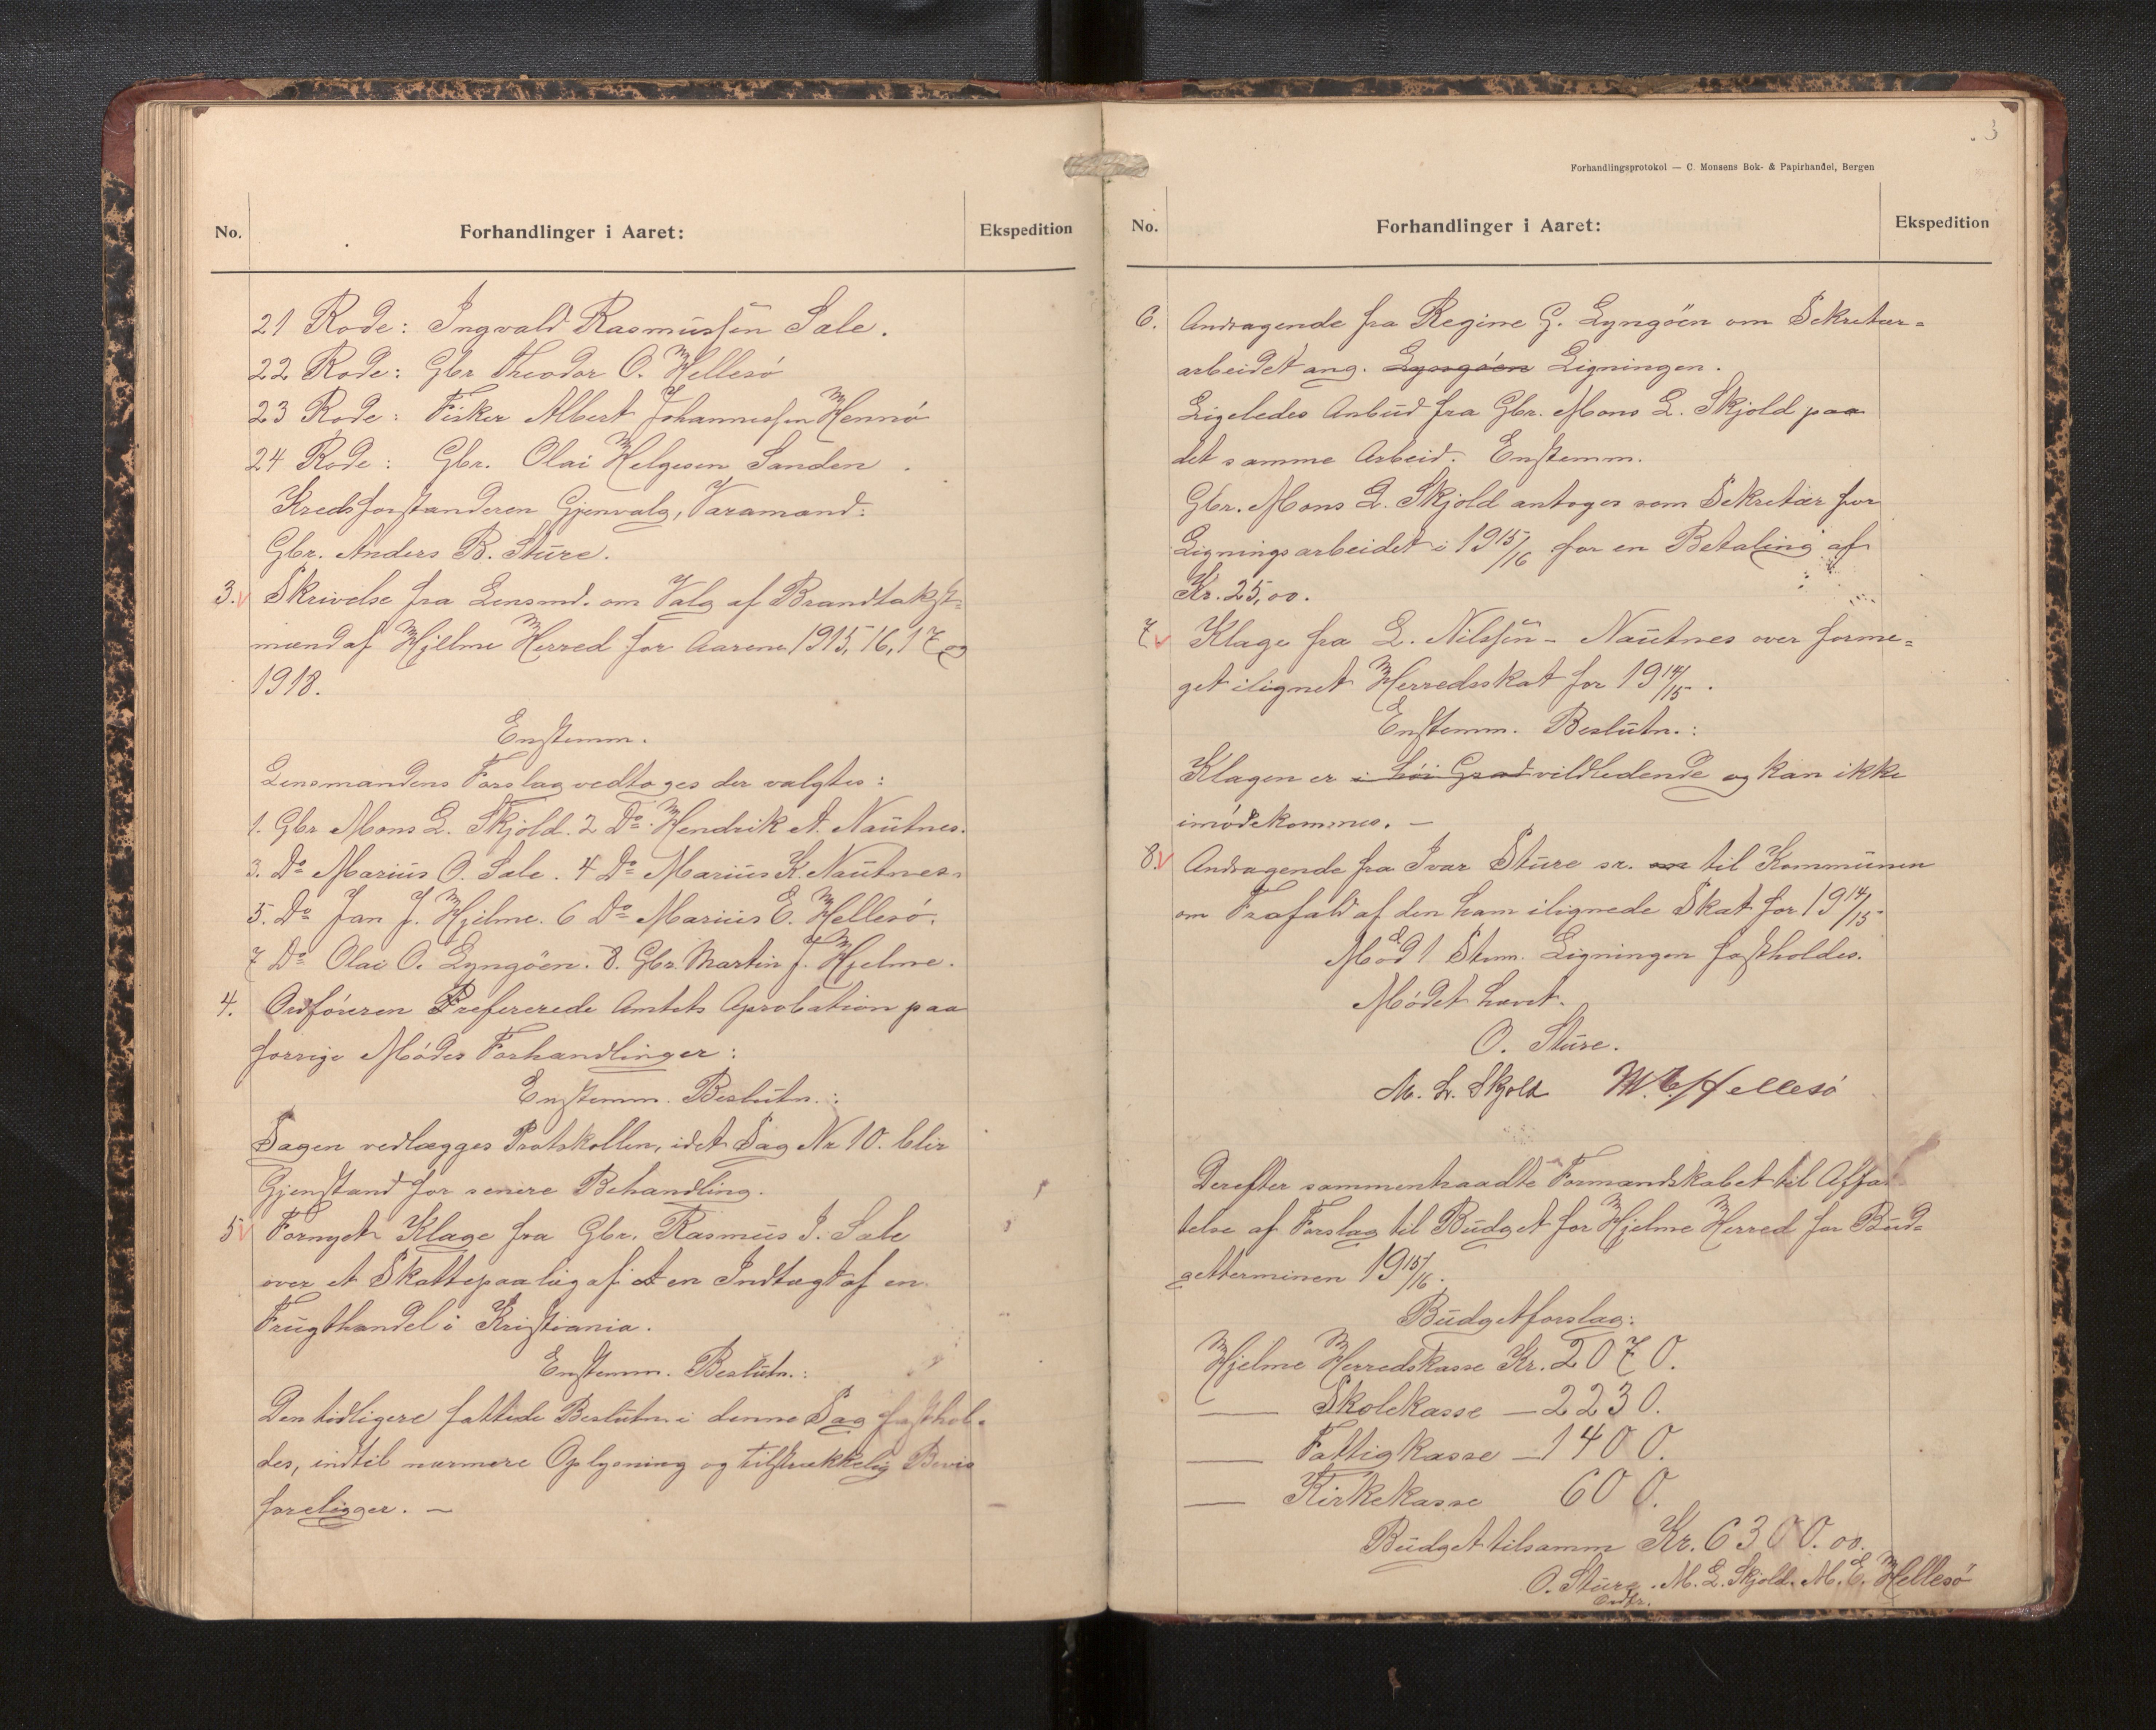 No.
Forhandlinger i Aaret:
Ekspedition
21 Rode: Ingvald Rasmussen Sale.
22 Rode: Gbr Theodor O. Hellesö
23 Rode: Fisker Albert Johannessen Hennö
24 Rode: Gbr. Olai Helgesen Sanden.
Kredsforstanderen Gjenvalg, Varamand:
Gbr. Anders B. Sture.
3. Skrivelse fra Lensmd. om Valg af Brandtakst-
mænd af Hjelme Herred for Aarene 1915, 16, 17 og
1918.
Enstemm.
Lensmandens Forslag vedtoges der valgtes:
1. Gbr Mons L. Skjold. 2 Do Hendrik A. Nautnes.
3. Do Marius O. Sale. 4 Do Marius K. Nautnes.
5. Do Jan J. Hjelme. 6 Do Marius E. Hellesö.
7 Do Olai O. Lyngöen. 8. Gbr. Martin J. Hjelme.
4. Ordföreren Prefererede Amtets Aprobation paa
forrige Mödes Forhandlinger:
Enstemm. Beslutn.:
Sagen vedlægges Protskollen, idet Sag Nr 10. blir
Gjenstand for senere Behandling.
5 Fornyet Klage fra Gbr. Rasmus I. Sale
over et Skattepaalæg af et en Indtægt af en
Frugthandel i Kristiania.
Enstemm. Beslutn.:
Den tidligere fattede Beslutn i denne Sag fasthol-
des, indtil nærmere Oplysning og tilstrækkelig Bevis
foreligger. —
3
Forhandlingsprotokol — C. Monsens Bok- & Papirhandel, Bergen
No.
Forhandlinger i Aaret:
Ekspedition
6. Andragende fra Regine G. Lyngöen om Sekretær-
arbeidet ang. Lyngöen Ligningen.
Ligeledes Anbud fra Gbr. Mons L. Skjold paa
det samme Arbeid. Enstemm.
Gbr. Mons L. Skjold antoges som Sekretær for
Ligningsarbeidet i 1915/16 for en Betaling af
Kr. 25,00.
7 Klage fra L. Nilssen - Nautnes over forme-
get ilignet Herredsskat for 1914/15.
Enstemm. Beslutn.:
Klagen er i höi Grad vildledende og kan ikke
imödekommes. —
8 Andragende fra Ivar Sture sr. om til Kommunen
om Frafald af den ham ilignede Skat for 1914/15
Mod 1 Stem. Ligningen fastholdes.
Mödet hævet.
O. Sture.
M. L. Skjold M. E. Hellesö
Derefter sammentraadte Formandskabet til Affat
telse af Forslag til Budget for Hjelme Herred for Bud-
getterminen 1915/16.
Budgetforslag:
Hjelme Herredskasse Kr. 2070.
— Skolekasse — 2230.
— Fattigkasse — 1400.
— Kirkekasse 600.
Budget tilsamm Kr. 6300.00.
O. Sture. M. L. Skjold. M. E. Hellesö
Ordfr.